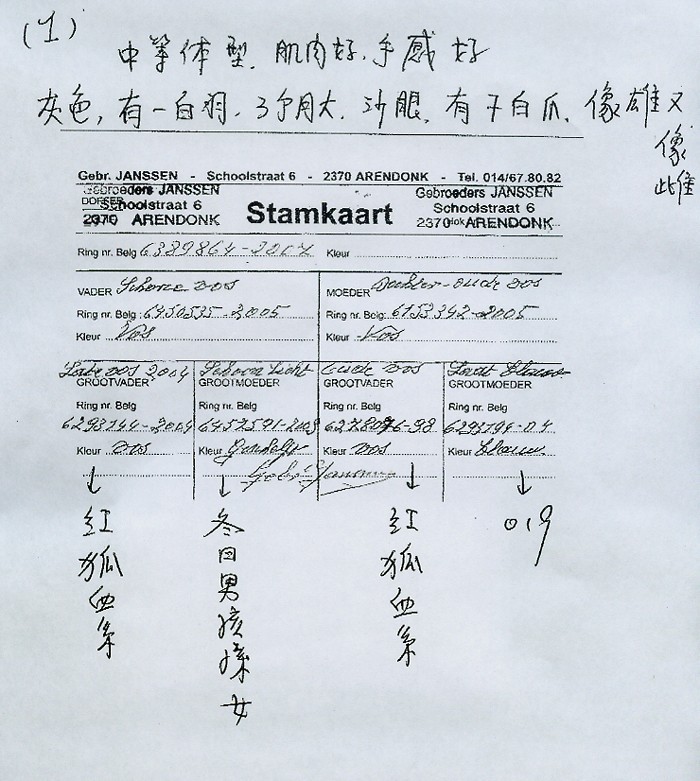 (1)
中等体型、肌肉好、手感好
灰色，有一白羽、3个月大、沙眼、有干白爪、像雄又
像
雌
Gebr. JANSSEN - Schoolstraat 6 - 2370 ARENDONK - Tel. 014/67.80.82
Gebroeders JANSSEN
Schoolstraat 6
2370 ARENDONK
Stamkaart
Gebroeders JANSSEN
Schoolstraat 6
2370 ARENDONK
Ring nr. Belg 6389864-2007 Kleur
VADER Schone vos
Ring nr. Belg: 6450535-2005
Kleur Vos
MOEDER Dochter-oude vos
Ring nr. Belg: 6153342-2005
Kleur Vos
vos 2004
GROOTVADER
Ring nr. Belg
6293144-2004
Kleur vos
Schoon licht
GROOTMOEDER
Ring nr. Belg
Kleur
Oude vos
GROOTVADER
Ring nr. Belg
Kleur vos
GROOTMOEDER
Ring nr. Belg
6293194-04
Kleur blauw
红狐血系
冬日男孩孫女
红狐血系
019